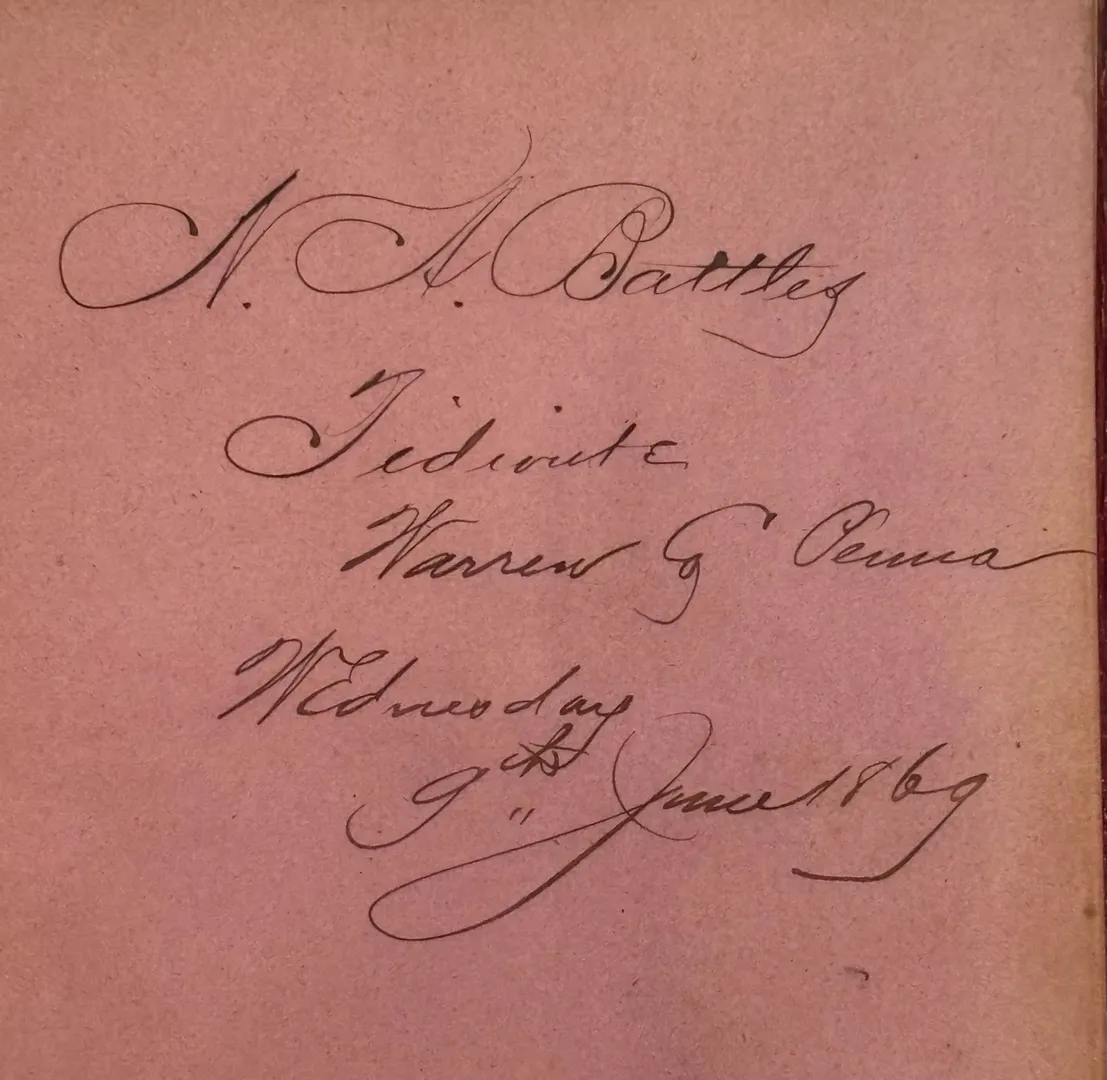 N. A. Battles
Tidioute
Warren Co Penna
WEdnesday
9th June 1869